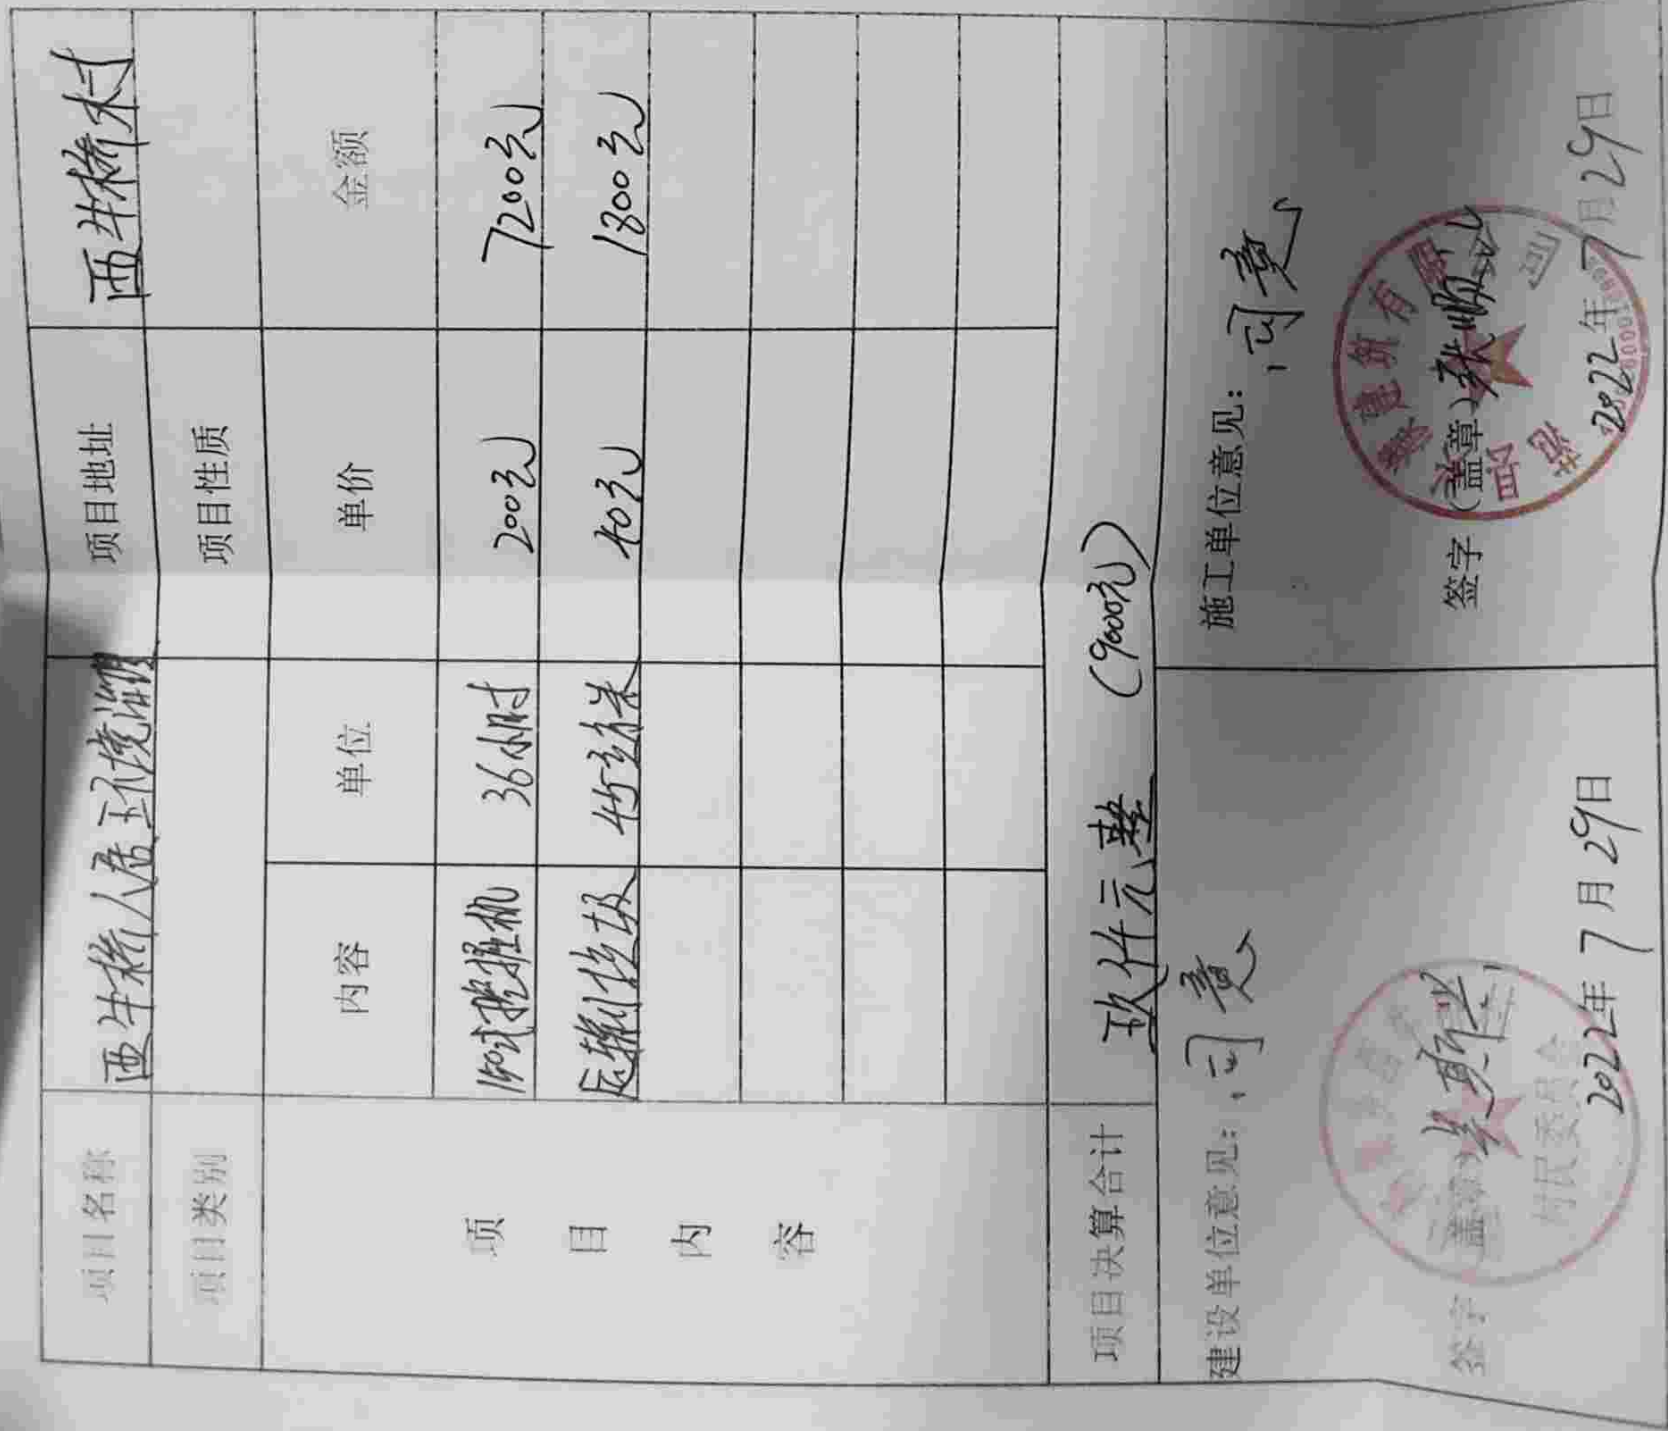 项目名称 西牛桥人居环境治理 项目地址 西牛桥村
项目类别 项目性质
项目内容
内容 单位 单价 金额
150式挖掘机 36小时 200元 7200元
运输垃圾 45立方米 40元 1800元
项目决算合计 玖仟元整 (9000元)
建设单位意见: 同意
签字(盖章)
村民委员会
2022年7月29日
施工单位意见: 同意
签字(盖章) 张顺
建筑有限公司
2022年7月29日